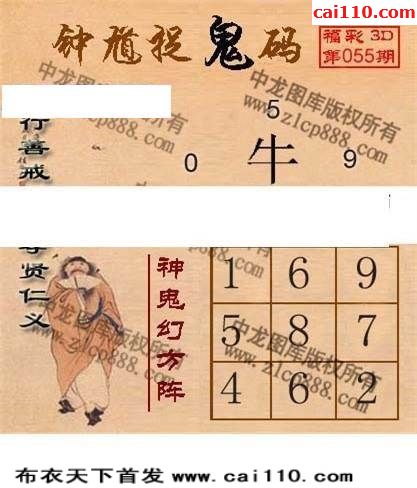 cai110.com
钟馗捉鬼码
福彩3D
第055期
中龙图库版权所有
www.zlcp888.com
行善戒
5
0 牛 9
贤仁义
神鬼幻方阵
1 6 9
5 8 7
4 6 2
中龙图库版权所有
www.zlcp888.com
中龙图库版权所有
www.zlcp888.com
布衣天下首发 www.cai110.com